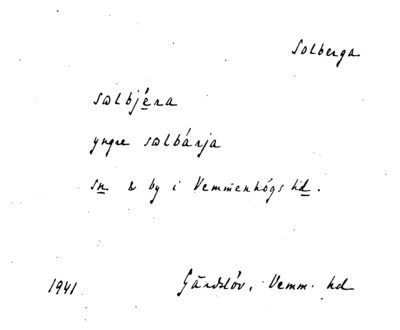 Solberga
sœlbjéra
yngre sœlbárja
sn & by i Vemmenhögs hd.
1941 Gärdslöv, Vemm. hd